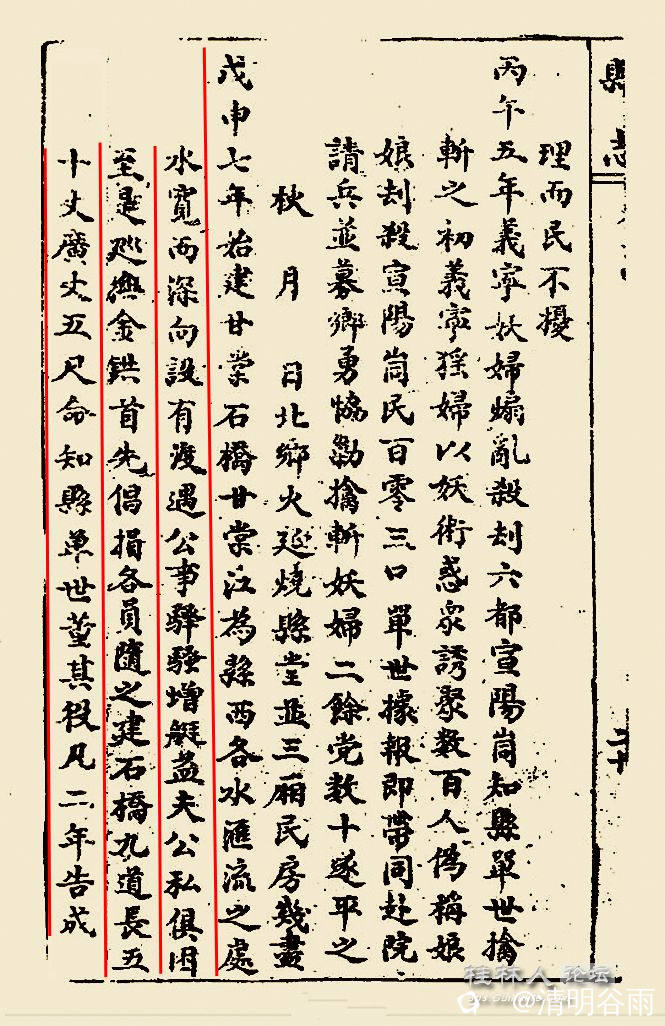 縣志
二十
理而民不擾
丙午五年義寧妖婦煽亂殺刦六都宣陽崗知縣單世擒
斬之初義寧猺婦以妖術惑衆誘聚数百人僞稱娘
娘刦殺宣陽崗民百零三口單世據報即帶同赴院
請兵並募鄉勇恊勦擒斬妖婦二餘党数十遂平之
秋月日北鄉火延燒縣堂並三廂民房幾盡
戊申七年始建甘棠石橋甘棠江為縣西各水滙流之處
水寬而深向設有渡遇公事驛騷增艇益夫公私俱困
至是廵撫金鉷首先倡捐各員隨之建石橋九道長五
十丈廣丈五尺命知縣單世董其役凡二年告成
桂林人论坛
@清明谷雨